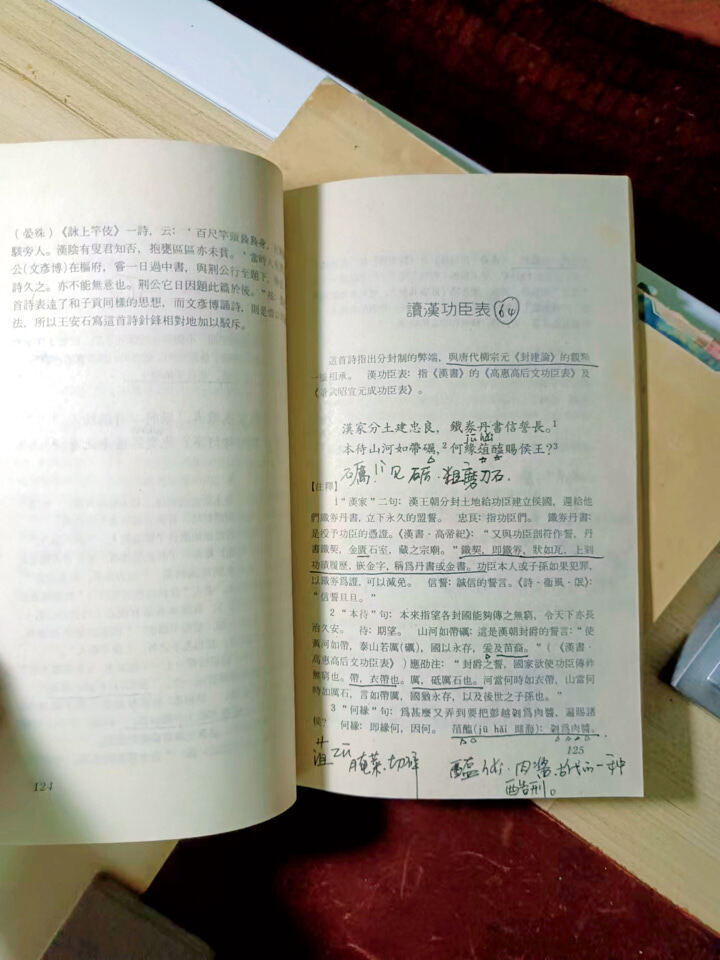 (晏殊)《詠上竿伎》一詩，云：‘百尺竿頭裊裊身，
駭旁人。漢陰有叟君知否，抱甕區區亦未貧。’當時人
公(文彥博)在樞府，嘗一日過中書，與荆公行至題下，
詩久之。亦不能無意也。荆公它日因題此篇於後。”按：
首詩表達了和子貢同樣的思想，而文彥博誦詩，則是
法，所以王安石寫這首詩針鋒相對地加以駁斥。
124
讀漢功臣表 64
這首詩指出分封制的弊端，與唐代柳宗元《封建論》的觀點
一脈相承。 漢功臣表：指《漢書》的《高惠高后文功臣表》及
《景武昭宣元成功臣表》。
漢家分土建忠良，鐵券丹書信誓長。1
jū hǎi
本待山河如帶礪，2 何緣菹醢賜侯王？3
礪 lì 见 砺·粗磨刀石.
【注釋】
1 “漢家”二句：漢王朝分封土地給功臣建立侯國，還給他
們鐵券丹書，立下永久的盟誓。 忠良：指功臣們。 鐵券丹書：
是授予功臣的憑證。《漢書·高帝紀》：“又與功臣剖符作誓，丹
書鐵契，金匱石室，藏之宗廟。”鐵契，即鐵券，狀如瓦，上刻
功績履歷，嵌金字，稱爲丹書或金書。功臣本人或子孫如果犯罪，
以鐵券爲證，可以減免。 信誓：誠信的誓言。《詩·衛風·氓》：
“信誓旦旦。”
2 “本待”句：本來指望各封國能夠傳之無窮，令天下亦長
治久安。 待：期望。 山河如帶礪：這是漢朝封爵的誓言：“使
黃河如帶，泰山若厲(礪)，國以永存，爰及苗裔。”(《漢書·
高惠高后文功臣表》)應劭注：“封爵之誓，國家欲使功臣傳祚
無窮也。帶，衣帶也。厲，砥厲石也。河當何時如衣帶，山當何
時如厲石，言如帶厲，國猶永存，以及後世之子孫也。”
3 “何緣”句：爲甚麼又弄到要把彭越剁爲肉醬，遍賜諸
侯？ 何緣：即緣何，因何。 菹醢(jū hǎi 睢海)：剁爲肉醬。
125
菹 腌菜·切碎
醢 肉酱·古代的一种
酷刑。